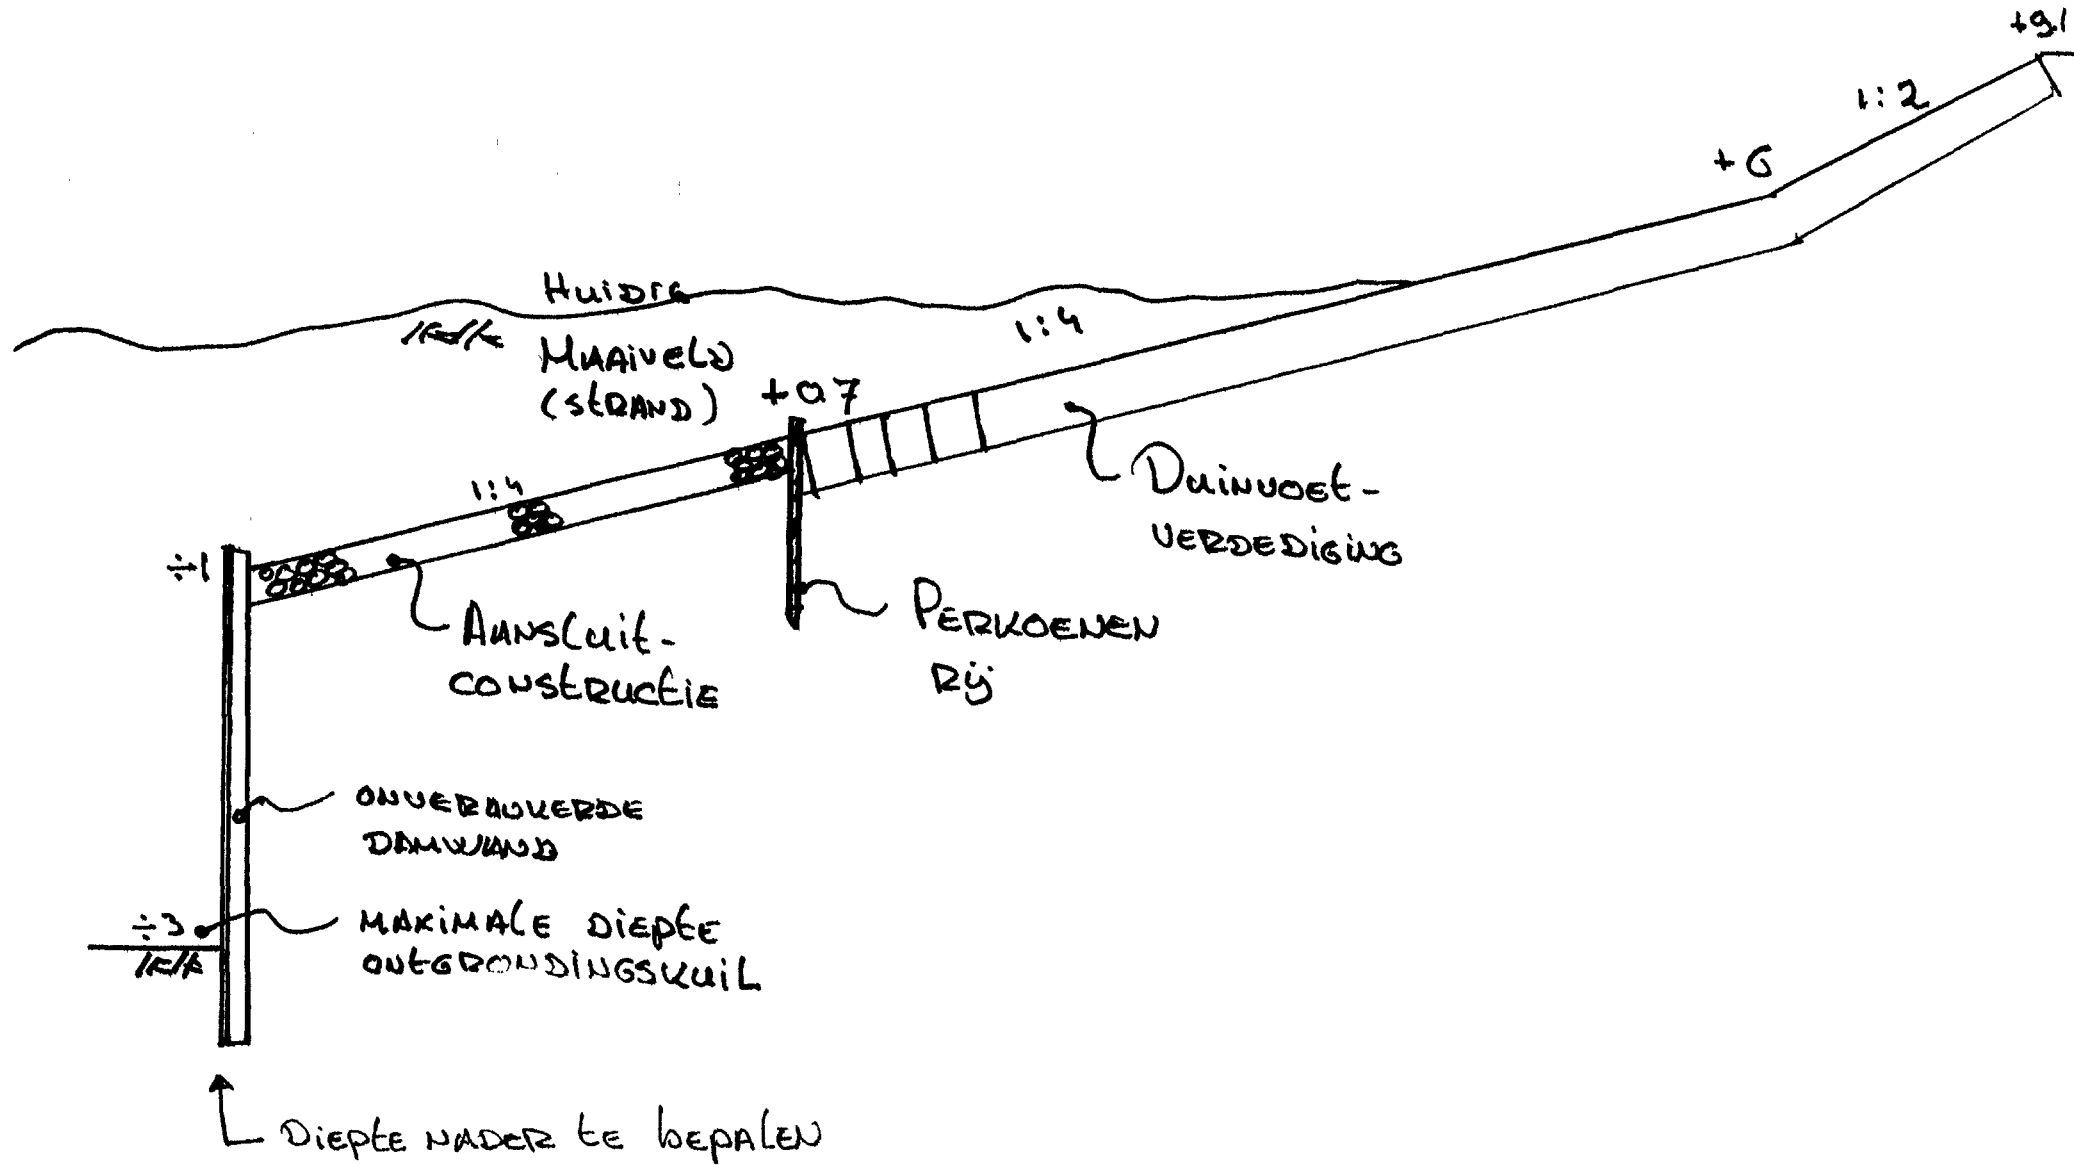 +9.1
1:2
+6
Huidig
Maaiveld
(strand)
1:4
+0.7
1:4
Duinvoet-
verdediging
÷1
Aansluit-
constructie
Perkoenen
rij
onverankerde
damwand
÷3
maximale diepte
ontgrondingskuil
Diepte nader te bepalen